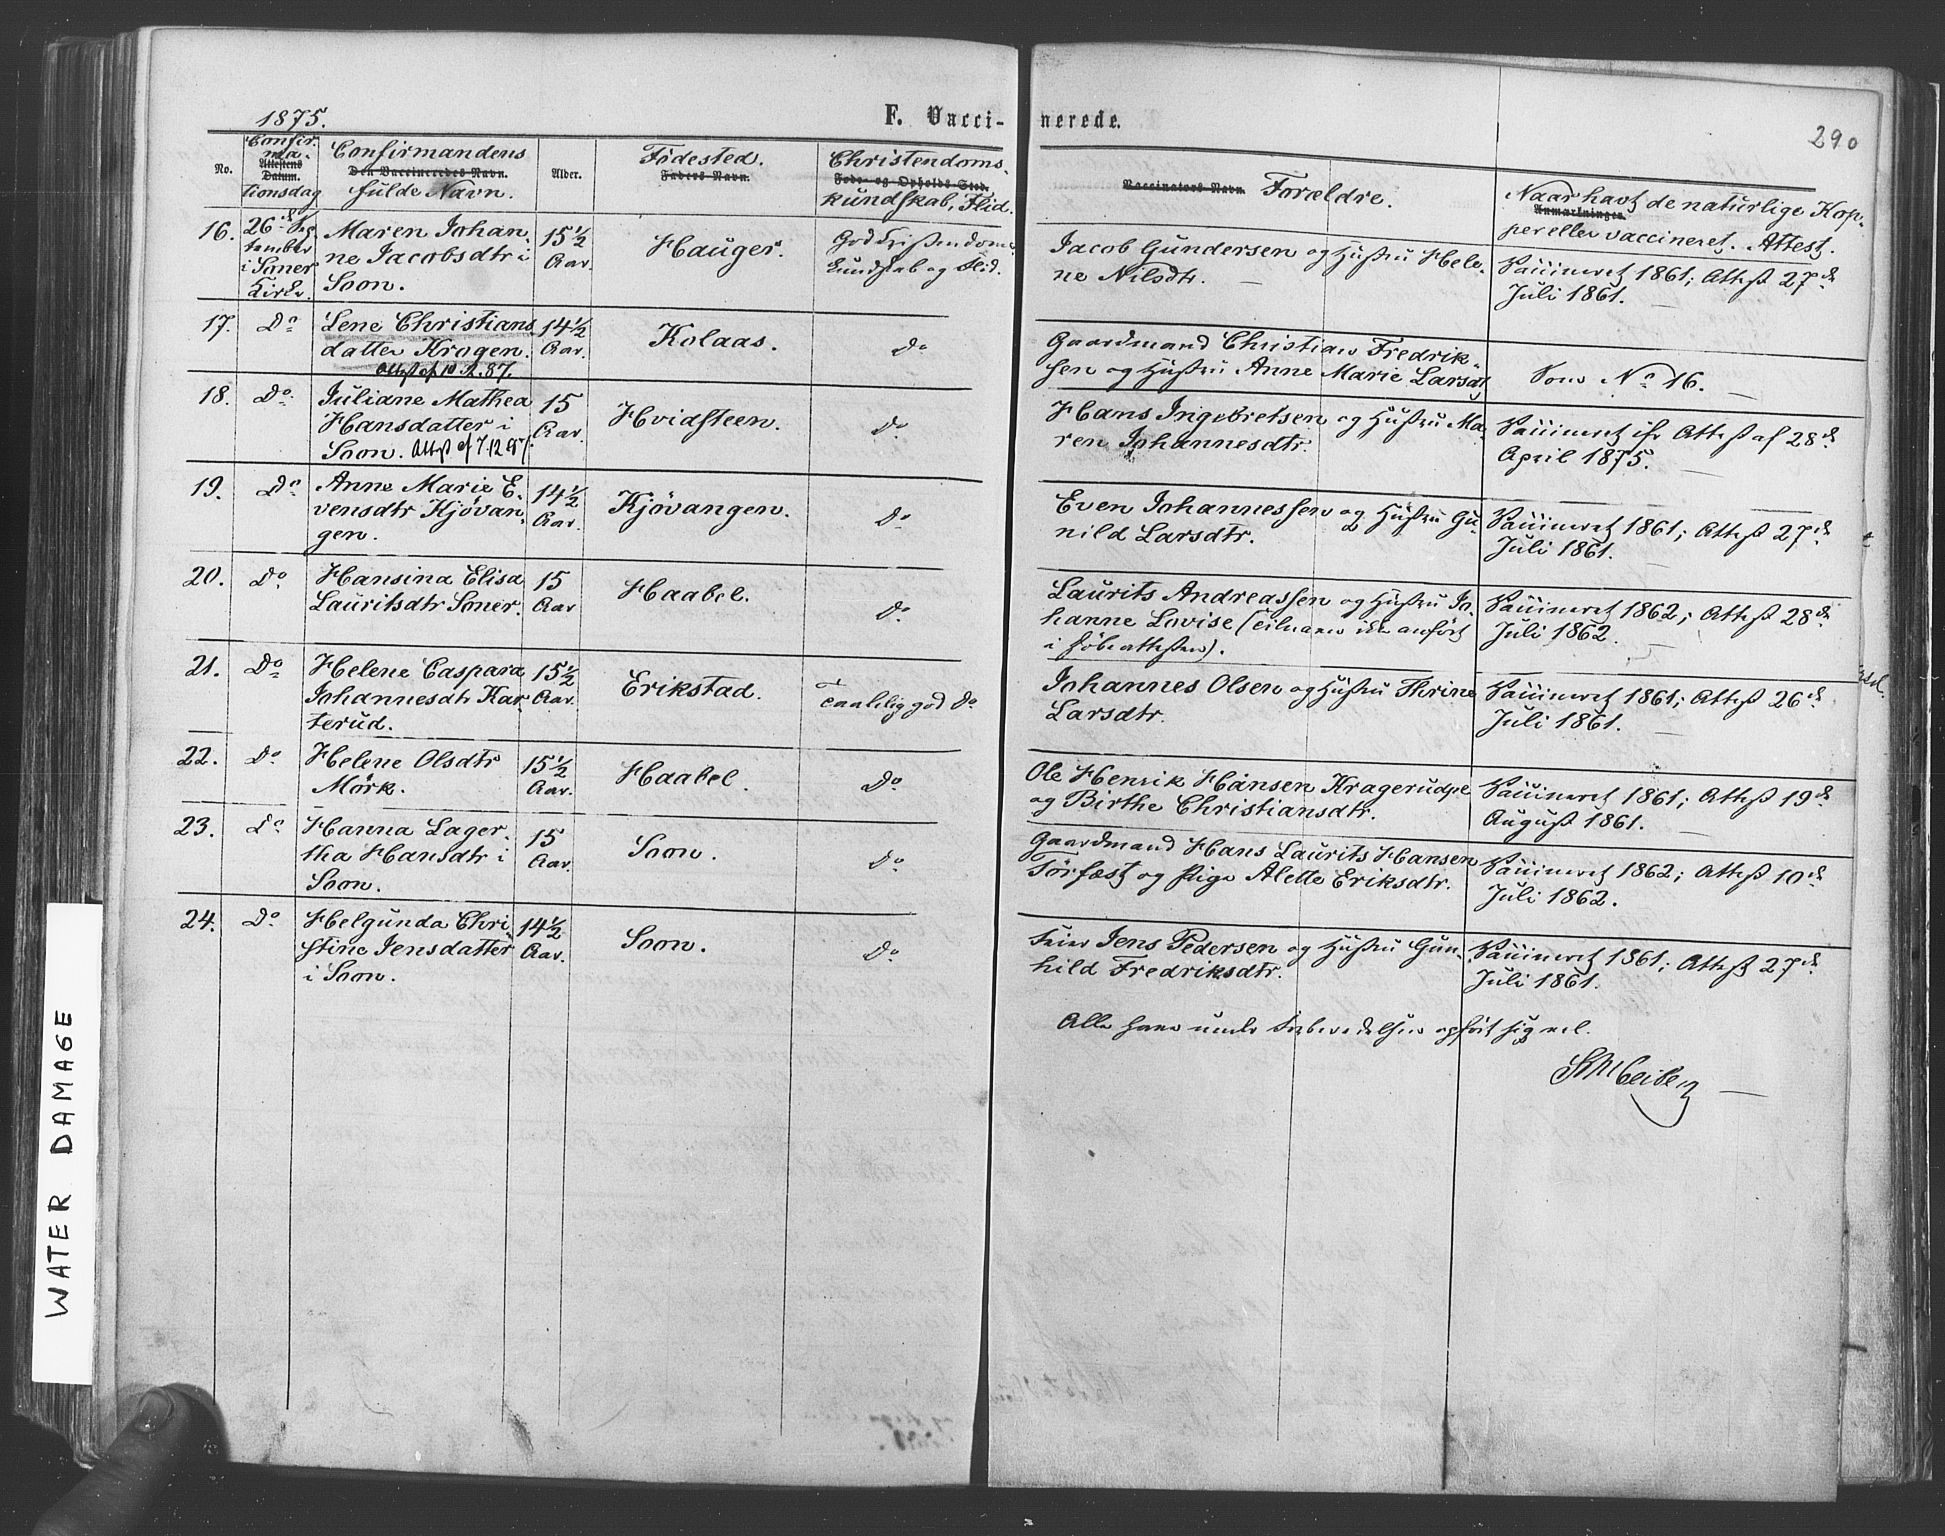 1875.
F. Vacci-
nerede.
290
No.
Confir-
ma-
Attestens
Datum.
tionsdag
Confirmandens
Den Vaccineredes Navn.
fulde Navn.
Alder.
Födested.
Faders Navn.
Christendoms-
Føde- og Opholds-Sted.
kundskab, Flid.
Vaccinators Navn. Forældre.
Naar havt de naturlige Kop-
Anmærkninger.
per eller vaccineret. Attest.
16.
26de Sep
tember
i Soner
Kirke.
Maren Johan-
ne Jacobsdtr i
Soon.
15½
Aar.
Hauger.
God Kristendoms
kundskab og Flid.
Jacob Gundersen og Hustru Hele-
ne Nilsdtr.
Vaccineret 1861; Attest 27de
Juli 1861.
17.
Do
Lene Christians
datter Krogen.
Attest af 10.2.87.
14½
Aar.
Kolaas.
Do
Gaardmand Christian Fredrik-
sen og Hustru Anne Marie Larsdtr
Som No 16.
18.
Do
Juliane Mathea
Hansdatter i
Soon. Attest af 7.12.87.
15
Aar.
Hvidsteen.
Do
Hans Ingebretsen og Hustru Ma-
ren Johannesdtr.
Vaccineret ifr Attest af 28de
April 1875.
19.
Do
Anne Marie E-
vensdtr Kjövan-
gen.
14½
Aar.
Kjövangen.
Do
Even Johannessen og Hustru Gu-
nild Larsdtr.
Vaccineret 1861; Attest 27de
Juli 1861.
20.
Do
Hansina Elisa
Lauritsdtr Soner.
15
Aar
Haabel.
Do
Laurits Andreassen og Hustru Jo-
hanne Lovise (Tilnavn ikke anfört
i Döbeattesten).
Vaccineret 1862; Attest 28de
Juli 1862.
21.
Do
Helene Caspara
Johannesdtr Kar
terud.
15½
Aar.
Erikstad.
Taalelig god Do
Johannes Olsen og Hustru Thrine
Larsdtr.
Vaccineret 1861; Attest 26de
Juli 1861.
22.
Do
Helene Olsdtr
Mörk.
15½
Aar.
Haabel.
Do
Ole Henrik Hansen Kragerudpe
og Birthe Christiansdtr.
Vaccineret 1861; Attest 19de
August 1861.
23.
Do
Hanna Lager-
tha Hansdtr i
Soon.
15
Aar.
Soon.
Do
Gaardmand Hans Laurits Hansen
Törfæst og Pige Alette Eriksdtr.
Vaccineret 1862; Attest 10de
Juli 1862.
24.
Do
Helgunda Chri
stine Jensdatter
i Soon.
14½
Aar.
Soon.
Do
Feier Jens Pedersen og Hustru Gun-
hild Fredriksdtr.
Vaccineret 1861; Attest 27de
Juli 1861.
Alle have under Forberedelsen opfört sig vel.
WATER DAMAGE